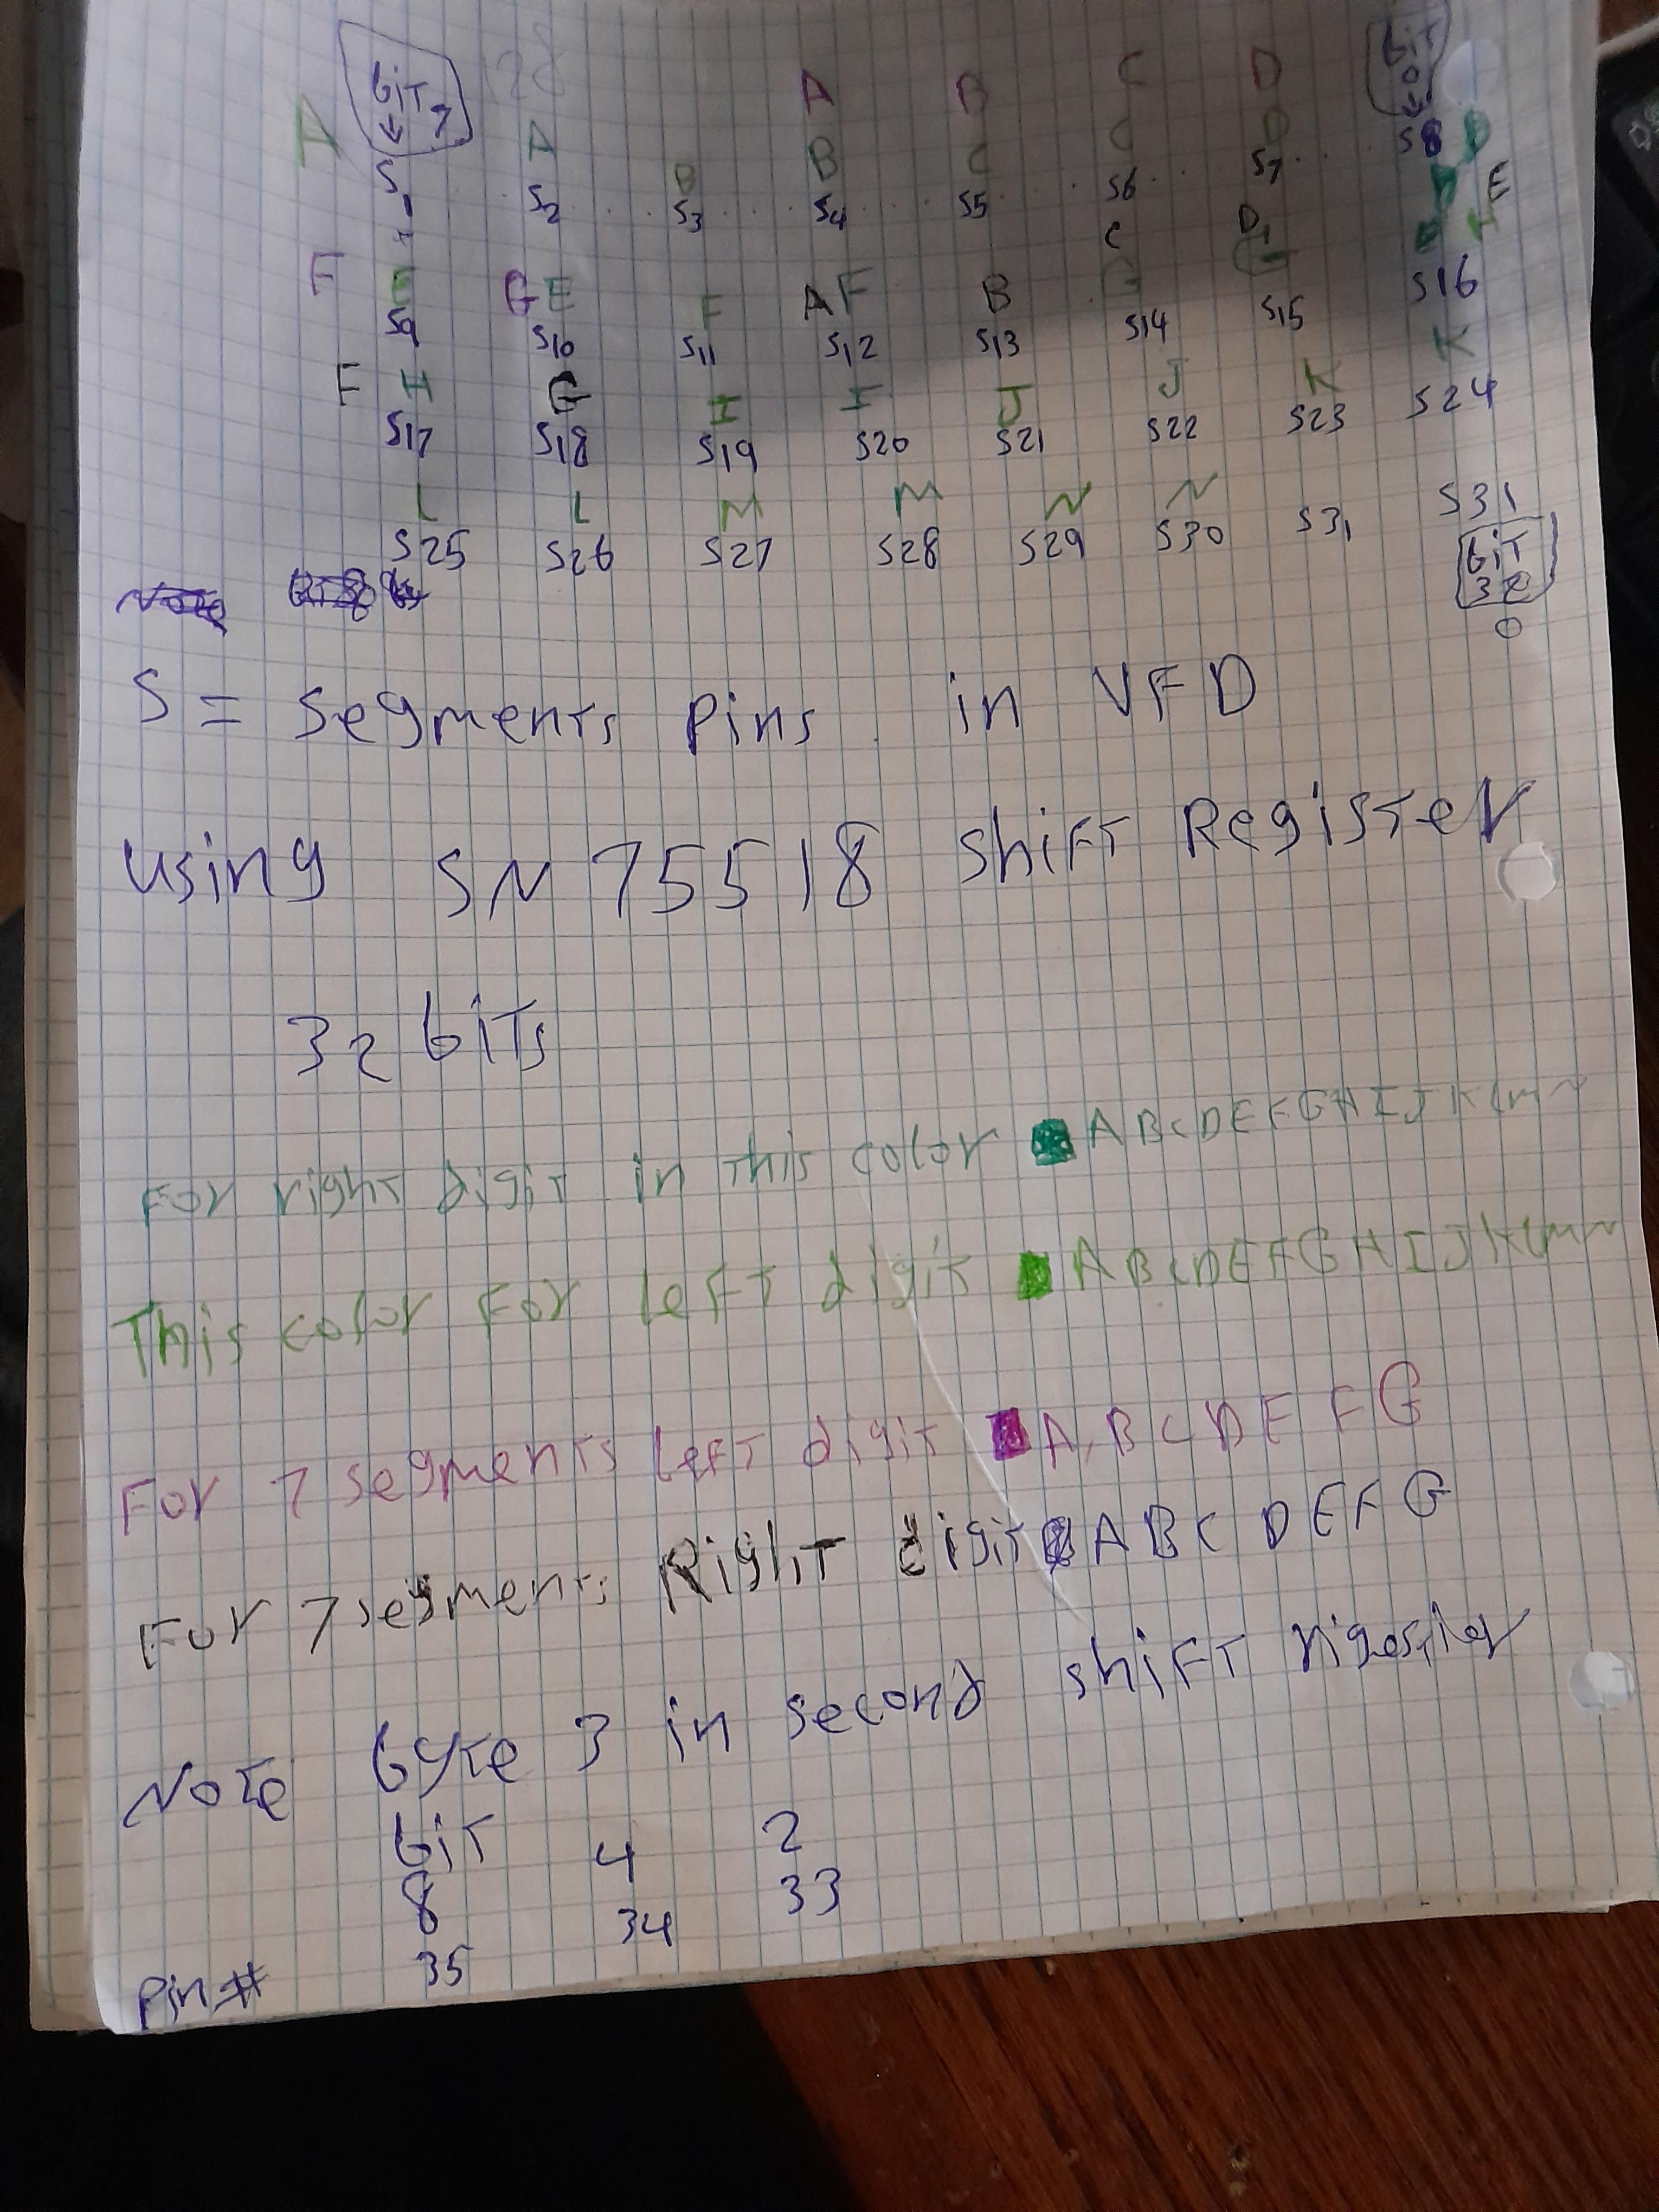 bit 7 bit 0
A B C D
A A B B C C D S8 D
S1 S2 S3 S4 S5 S6 S7 E
C D
F E G E F A F B G G S16
S9 S10 S11 S12 S13 S14 S15
F H G I I J J K K
S17 S18 S19 S20 S21 S22 S23 S24
L L M M N N
S25 S26 S27 S28 S29 S30 S31 S31
bit 32
0
S = segments pins in VFD
using SN 75518 shift Register
32 bits
For right digit in this color A B C D E F G H I J K L m N
This color For left digit A B C D E F G H I J K L m N
For 7 segments left digit A, B C D E F G
For 7 segments Right digit A B C D E F G
Note byte 3 in second shift rigestier
bit 4 2
8 34 33
Pin # 35